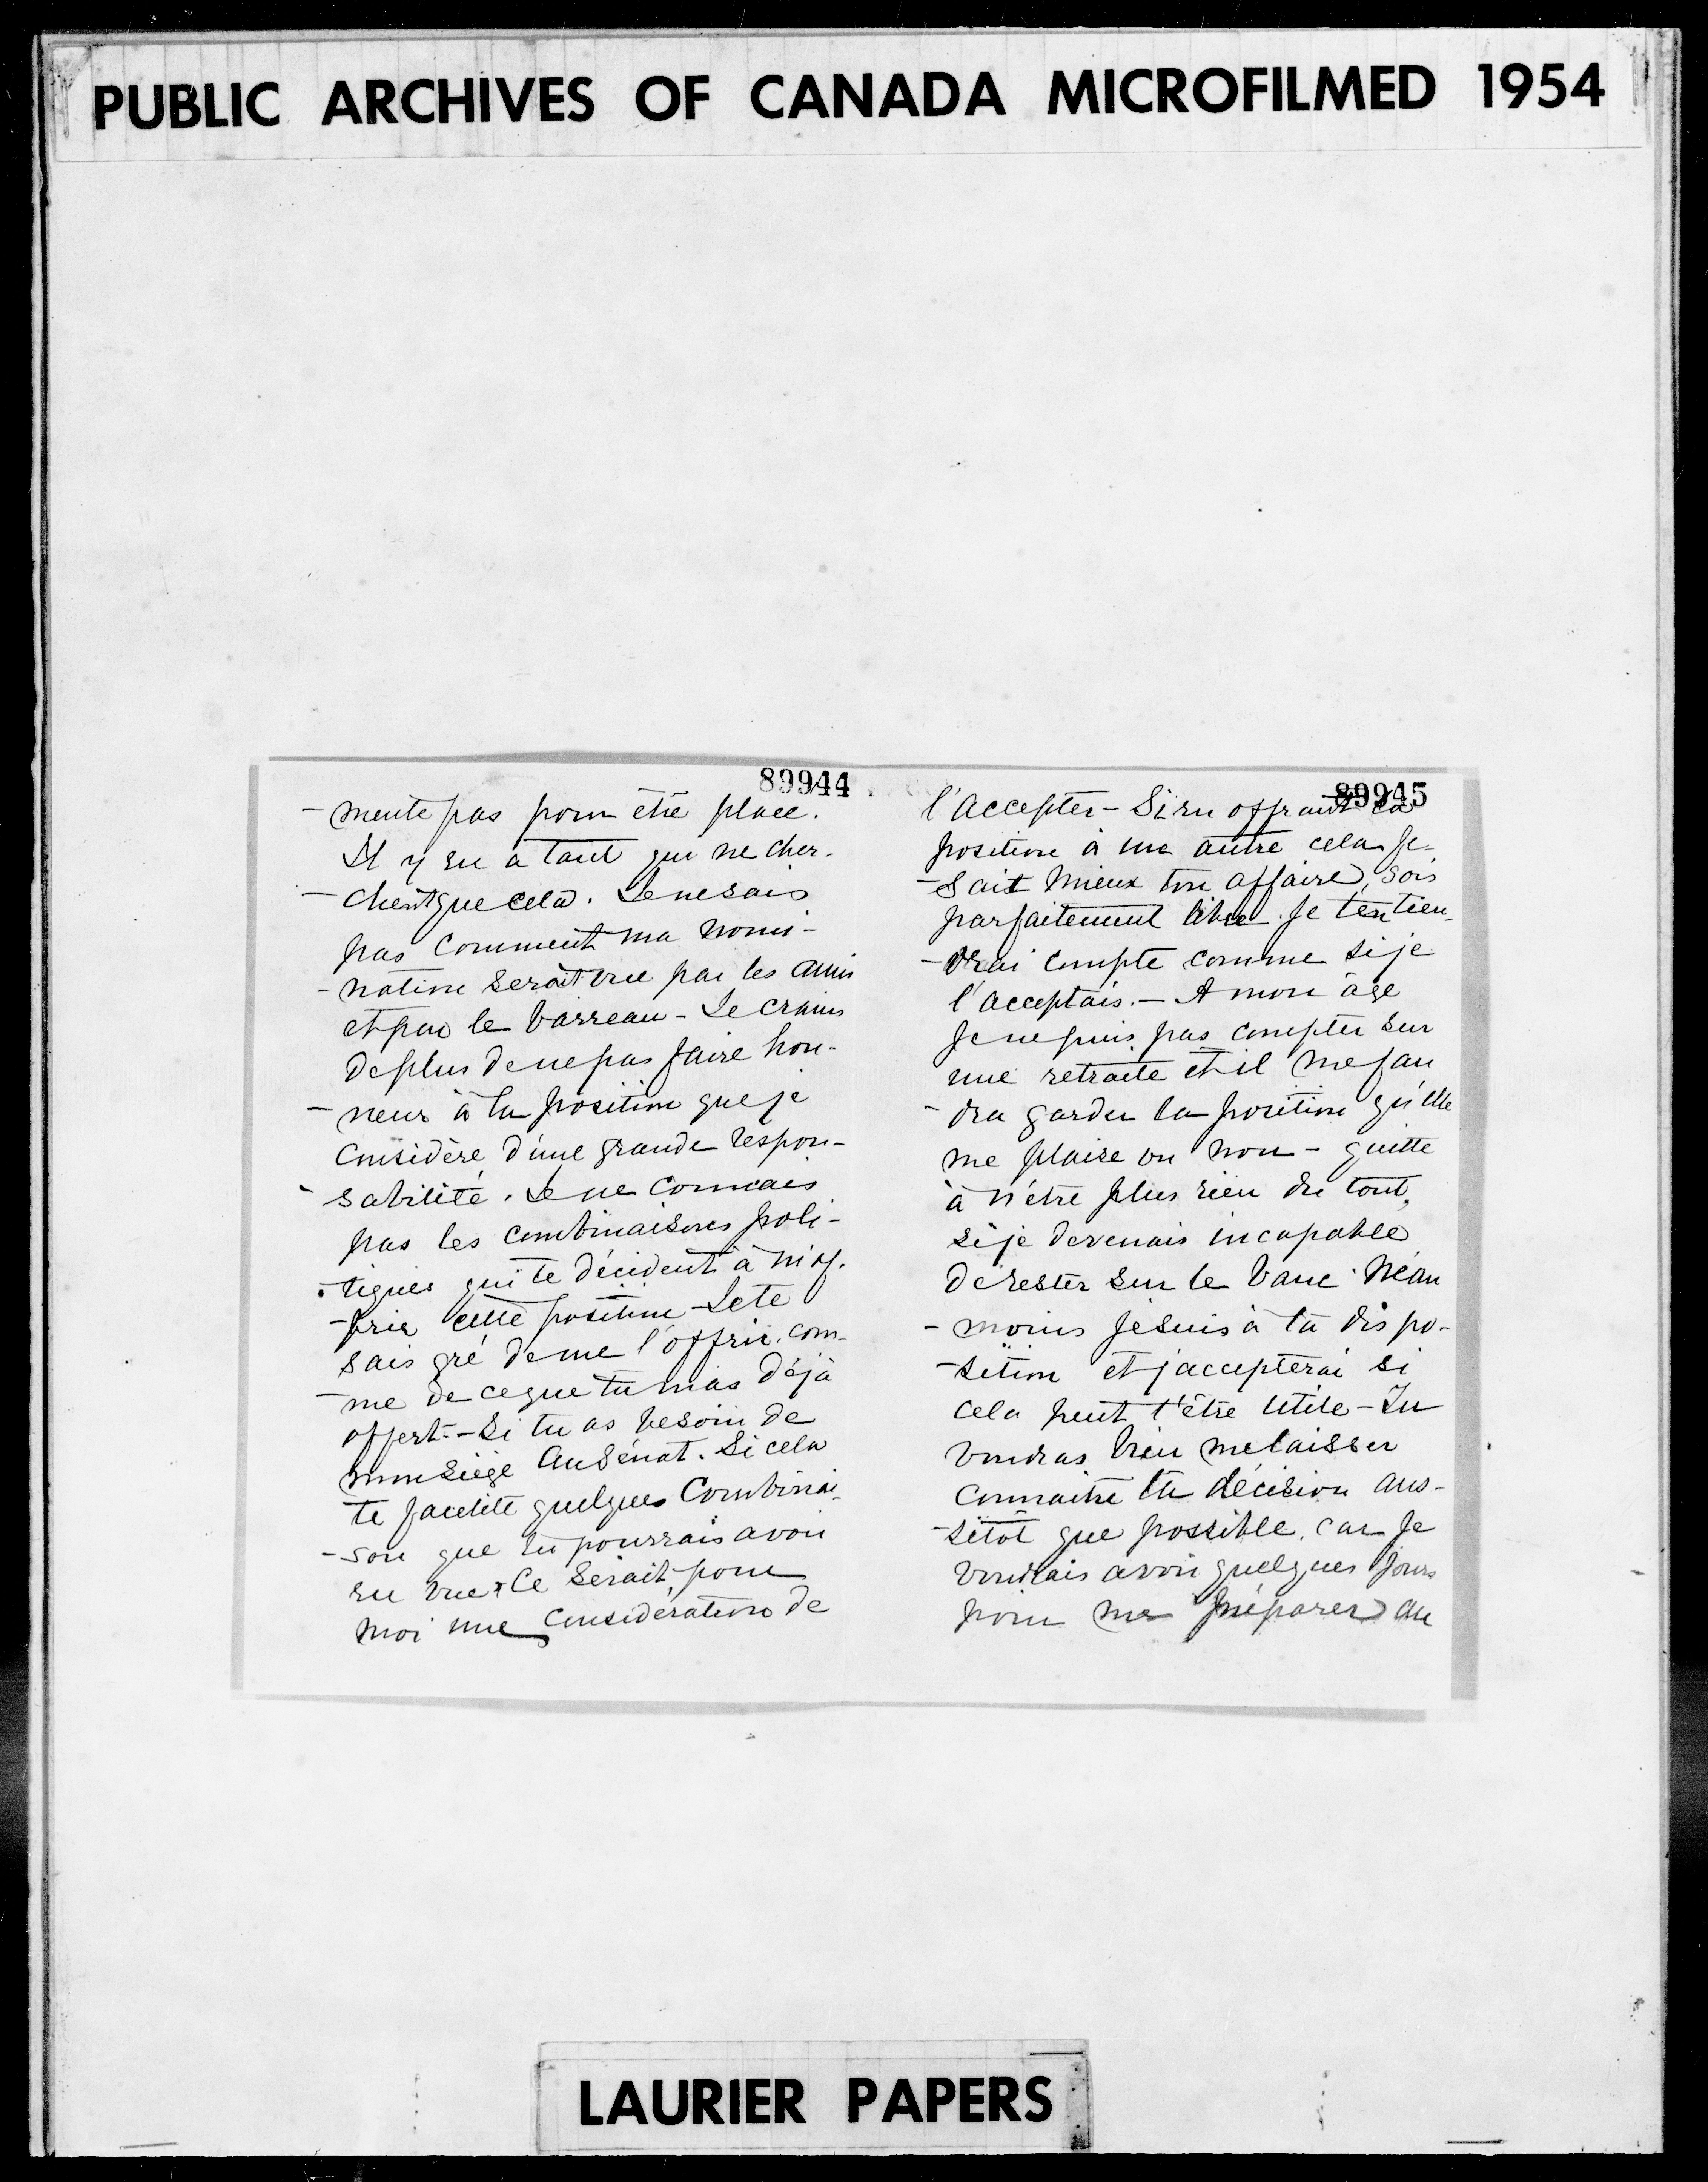 PUBLIC ARCHIVES OF CANADA MICROFILMED 1954
89944
- mente pas pour être placé.
Il y en a tant qui ne cher-
- chent que cela. Je ne sais
pas comment ma nomi-
- nation serait vue par les amis
et par le barreau - Je crains
de plus de ne pas faire hon-
- neur à la position que je
considère d'une grande respon-
- sabilité. Je ne connais
pas les combinaisons poli-
- tiques qui te décident à m'of-
- frir cette position - Je te
sais gré de me l'offrir. com-
- me de ce que tu m'as déjà
offert - Si tu as besoin de
mon siège au Sénat. Si cela
te facilite quelques combinai-
- son que tu pourrais avoir
en vue. Ce serait pour
moi une considération de
89945
l'accepter - Si en offrant la
position à un autre cela fe-
- sait mieux ton affaire, sois
parfaitement libre. Je t'en tien-
- drai compte comme si je
l'acceptais. - A mon âge
Je ne puis pas compter sur
une retraite et il me fau
- dra garder la position qu'elle
me plaise ou non - quitte
à n'être plus rien du tout,
si je devenais incapable
de rester sur le banc. Néan
- moins je suis à ta dispo-
- sition et j'accepterai si
cela peut t'être utile - Tu
voudras bien me laisser
connaitre ta décision aus-
- sitôt que possible. car je
voudrais avoir quelques jours
pour me préparer au
LAURIER PAPERS